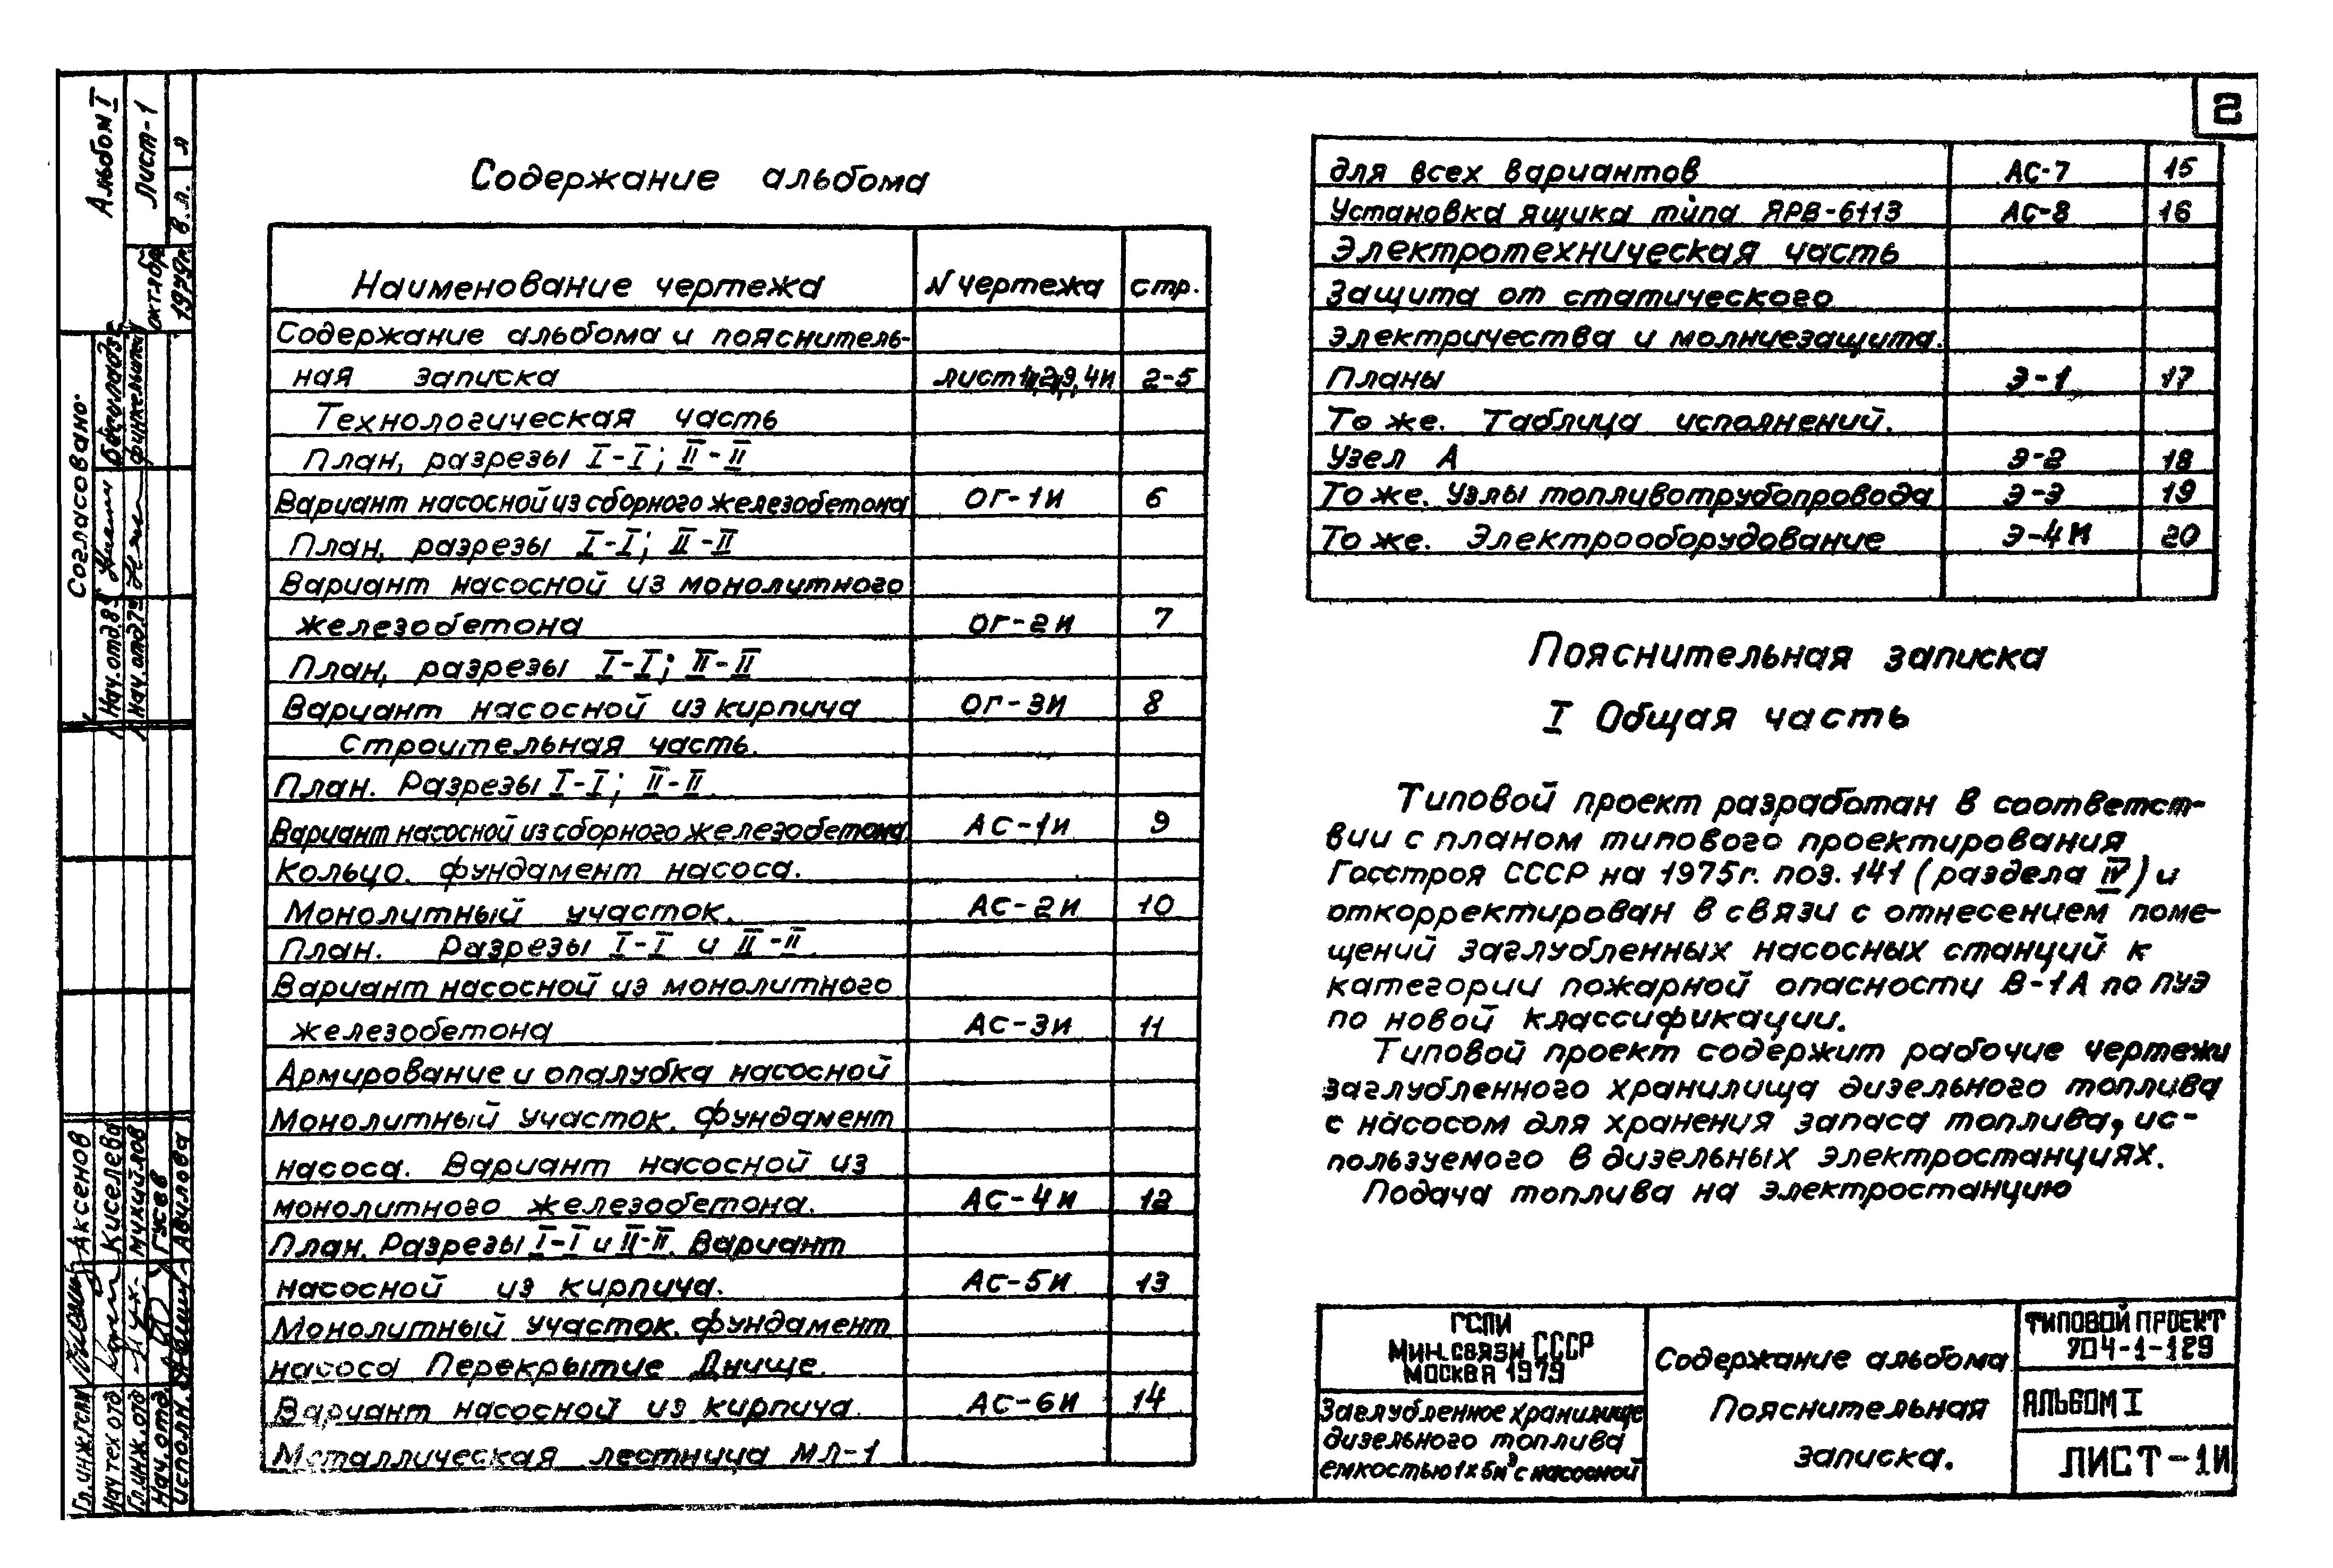 2
Содержание альбома
Наименование чертежа N чертежа стр.
Содержание альбома и пояснитель-
ная записка лист 1и,2и,3,4и 2-5
Технологическая часть
План, разрезы I-I; II-II
Вариант насосной из сборного железобетона ОГ-1И 6
План, разрезы I-I; II-II
Вариант насосной из монолитного
железобетона ОГ-2И 7
План, разрезы I-I; II-II
Вариант насосной из кирпича ОГ-3И 8
Строительная часть.
План. Разрезы I-I; II-II.
Вариант насосной из сборного железобетона АС-1И 9
Кольцо. Фундамент насоса.
Монолитный участок. АС-2И 10
План. Разрезы I-I и II-II.
Вариант насосной из монолитного
железобетона АС-3И 11
Армирование и опалубка насосной
Монолитный участок. Фундамент
насоса. Вариант насосной из
монолитного железобетона. АС-4И 12
План. Разрезы I-I и II-II. Вариант
насосной из кирпича. АС-5И 13
Монолитный участок. Фундамент
насоса Перекрытие Днище.
Вариант насосной из кирпича. АС-6И 14
Металлическая лестница МЛ-1
для всех вариантов АС-7 15
Установка ящика типа ЯРВ-6113 АС-8 16
Электротехническая часть
Защита от статического
электричества и молниезащита.
Планы Э-1 17
То же. Таблица исполнений.
Узел А Э-2 18
То же. Узлы топливотрубопровода Э-3 19
То же. Электрооборудование Э-4И 20
Пояснительная записка
I Общая часть
Типовой проект разработан в соответст-
вии с планом типового проектирования
Госстроя СССР на 1975г. поз. 141 (раздела IV) и
откорректирован в связи с отнесением поме-
щений заглубленных насосных станций к
категории пожарной опасности В-1А по ПУЭ
по новой классификации.
Типовой проект содержит рабочие чертежи
заглубленного хранилища дизельного топлива
с насосом для хранения запаса топлива, ис-
пользуемого в дизельных электростанциях.
Подача топлива на электростанцию
ГСПИ
Мин.связи СССР
Москва 1979
Заглубленное хранилище
дизельного топлива
емкостью 1х5м³ с насосной
Содержание альбома
Пояснительная
записка.
ТИПОВОЙ ПРОЕКТ
704-1-129
АЛЬБОМ I
ЛИСТ-1И
Альбом I
Лист-1
октябрь
1979г.
В.Л. Я
Согласовано:
Нач.отд.85
Нач.отд.79 Финкельштейн
Гл.инж ГСПИ Аксенов
Нач тех отд Киселева
Гл.инж.отд Мухийлов
Нач.отд. Гусев
Исполн. Авилова